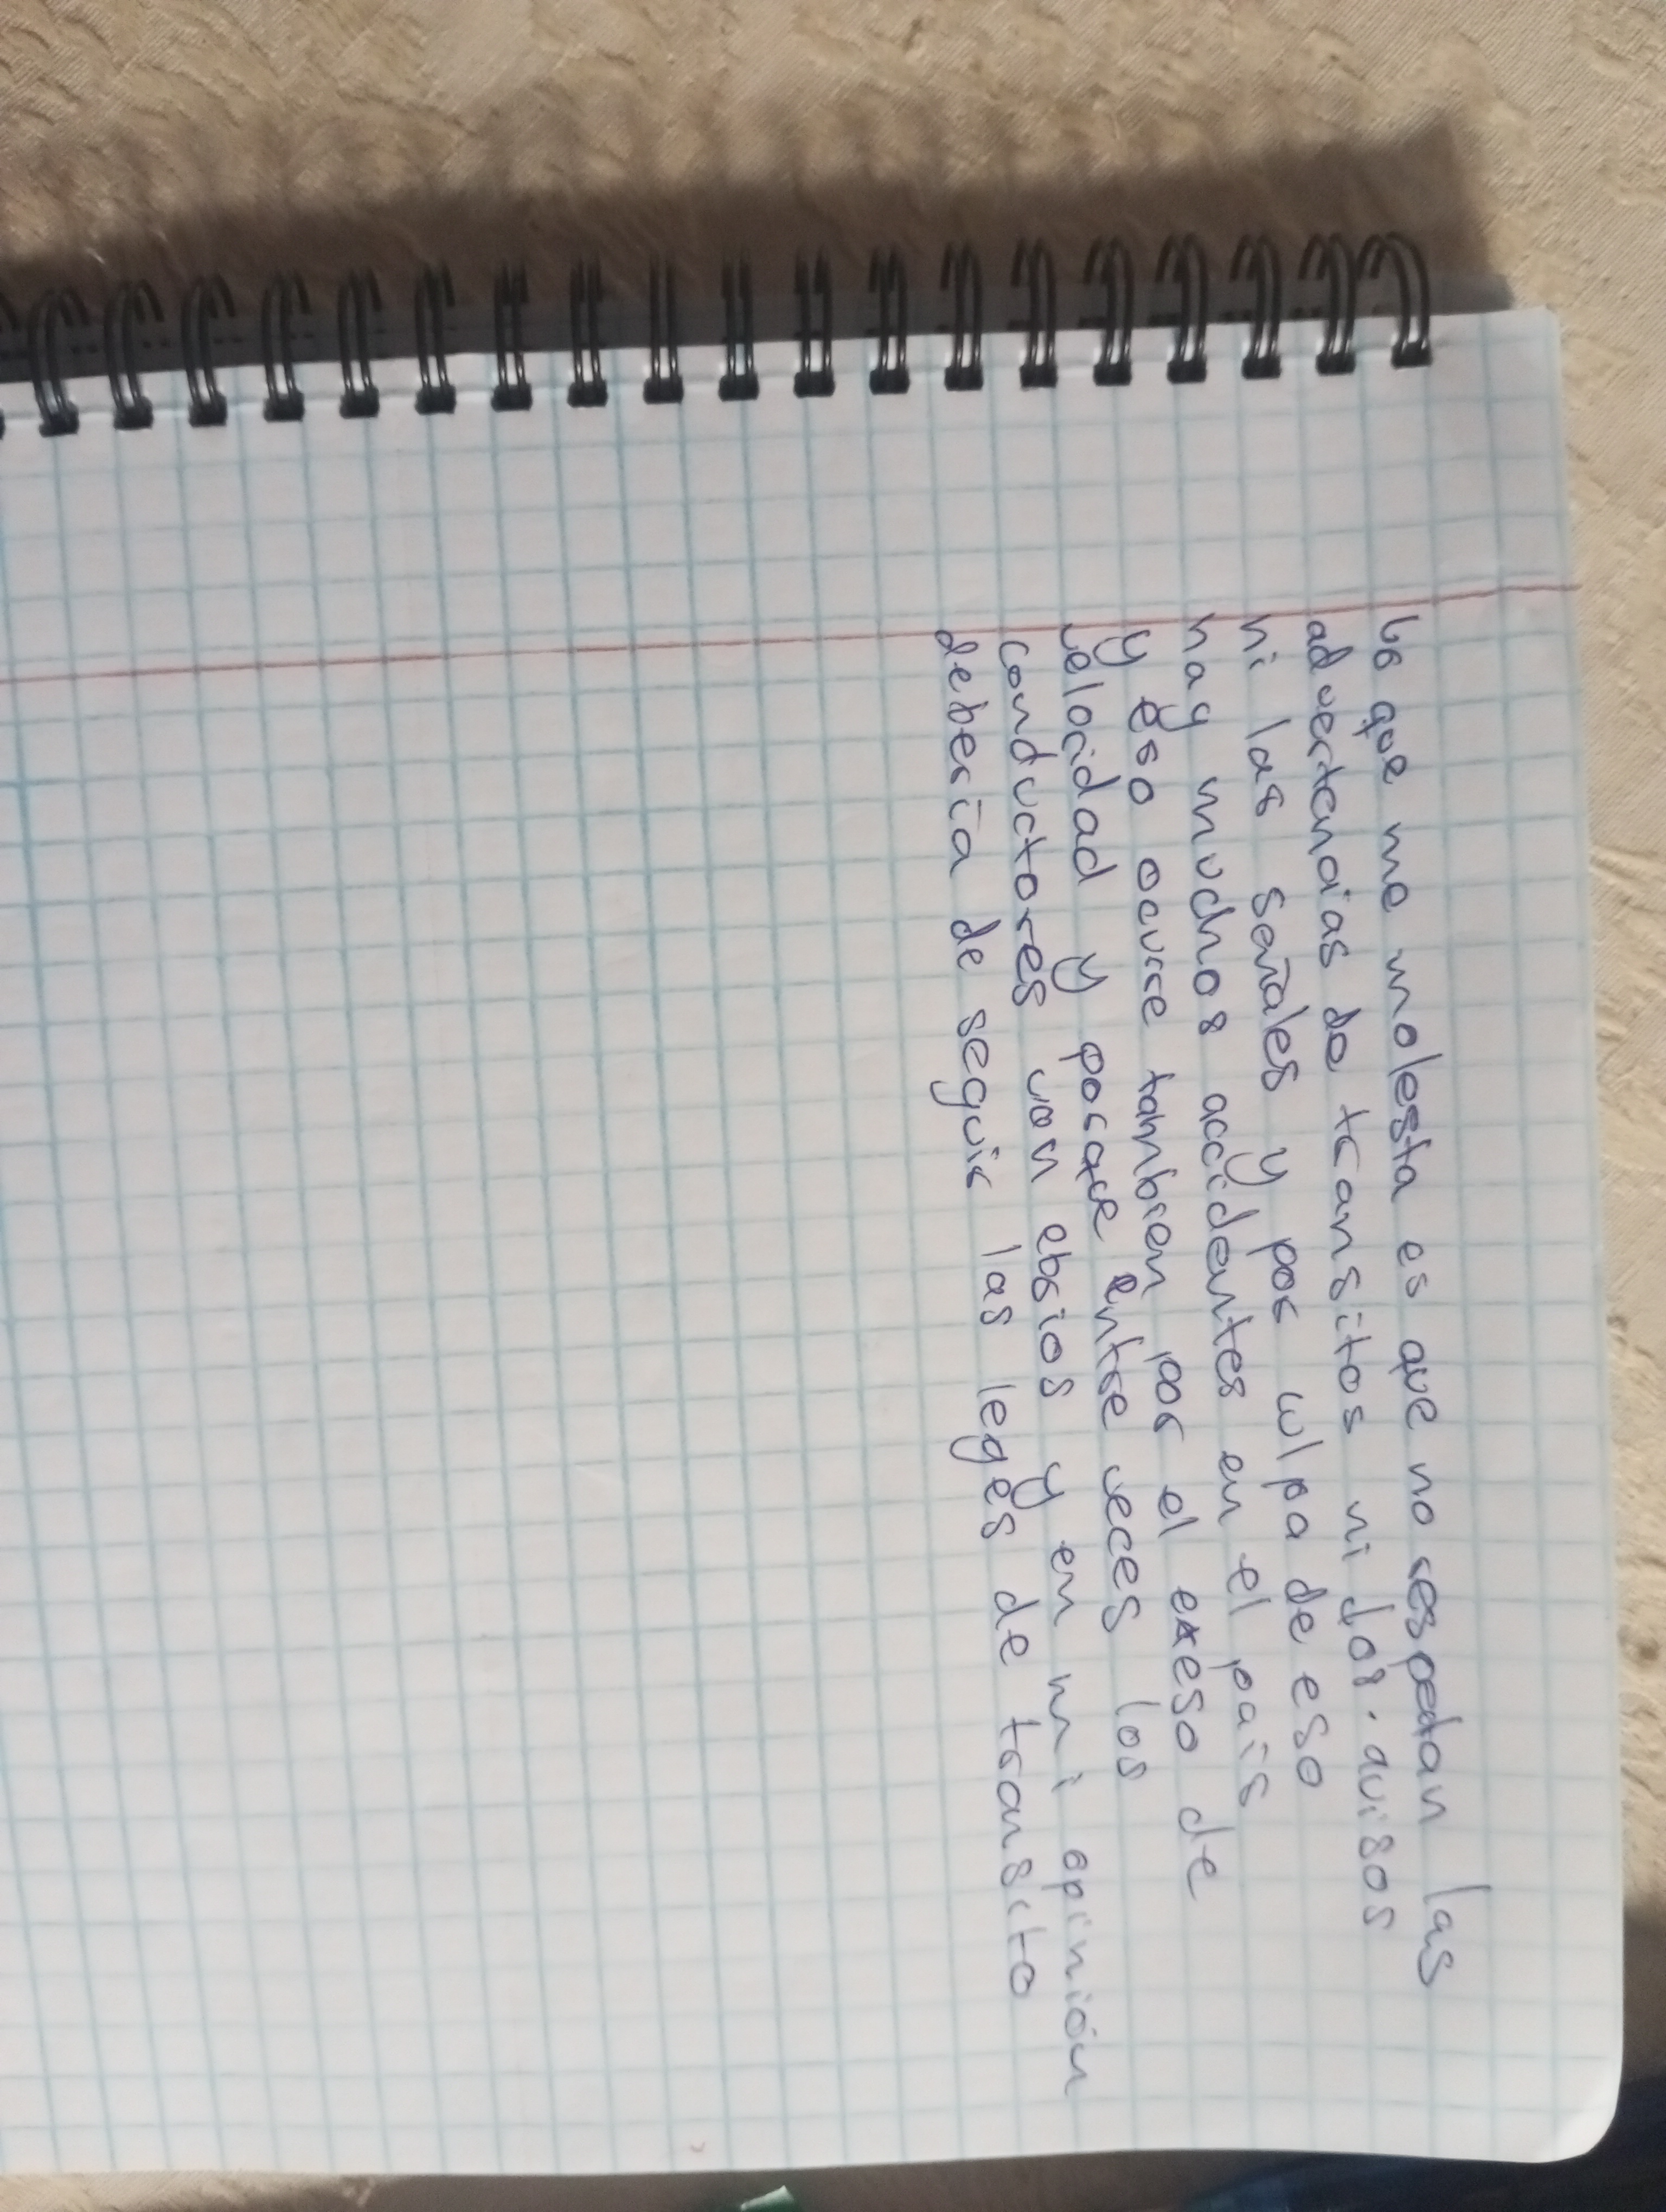 Lo que me molesta es que no respetan las
advertencias de transitos ni los avisos
ni las señales y por culpa de eso
hay muchos accidentes en el pais
y eso ocurre tambien por el exeso de
velocidad y porque entre veces los
conductores van ebrios y en mi opinión
debería de seguir las leyes de transito